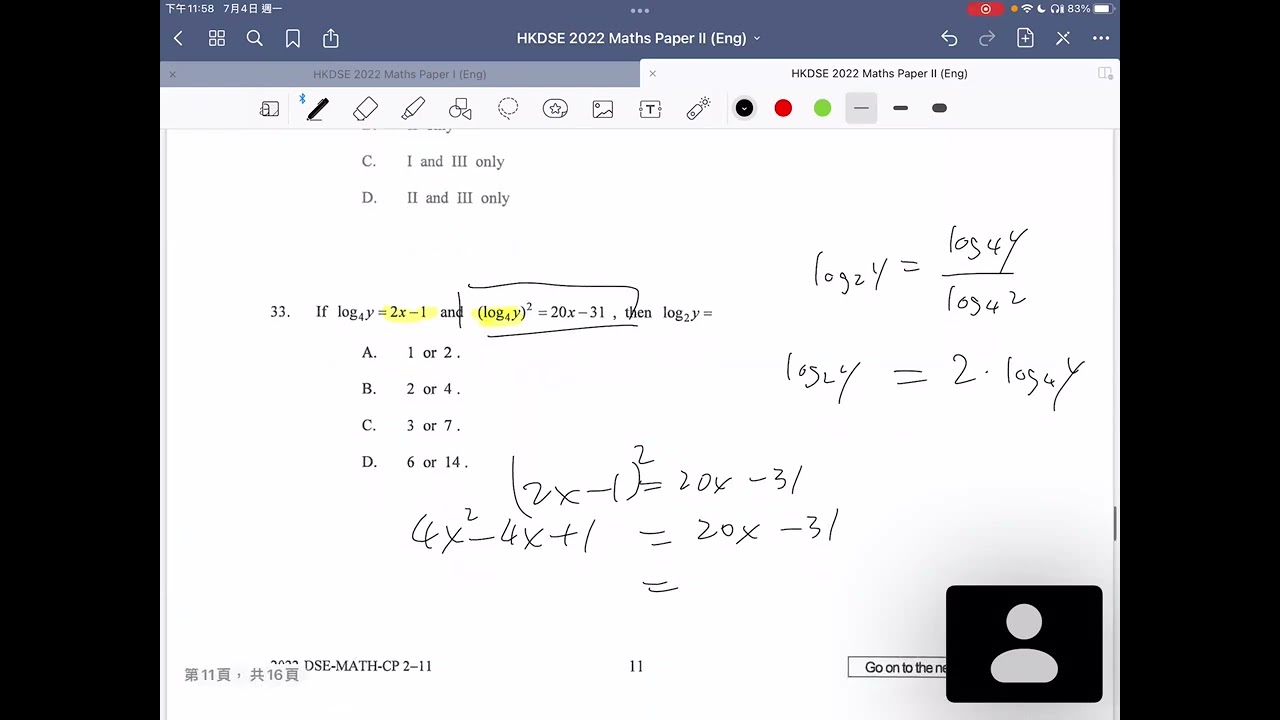 下午11:58 7月4日 週一
83%
HKDSE 2022 Maths Paper II (Eng)
HKDSE 2022 Maths Paper I (Eng)
HKDSE 2022 Maths Paper II (Eng)
C. I and III only
D. II and III only
33. If log₄y = 2x−1 and (log₄y)² = 20x−31 , then log₂y =
A. 1 or 2 .
B. 2 or 4 .
C. 3 or 7 .
D. 6 or 14 .
log₂y = log₄y / log₄2
log₂y = 2 · log₄y
(2x−1)² = 20x −31
4x²−4x+1 = 20x −31
=
DSE-MATH-CP 2–11
11
Go on to the
第11頁，共16頁